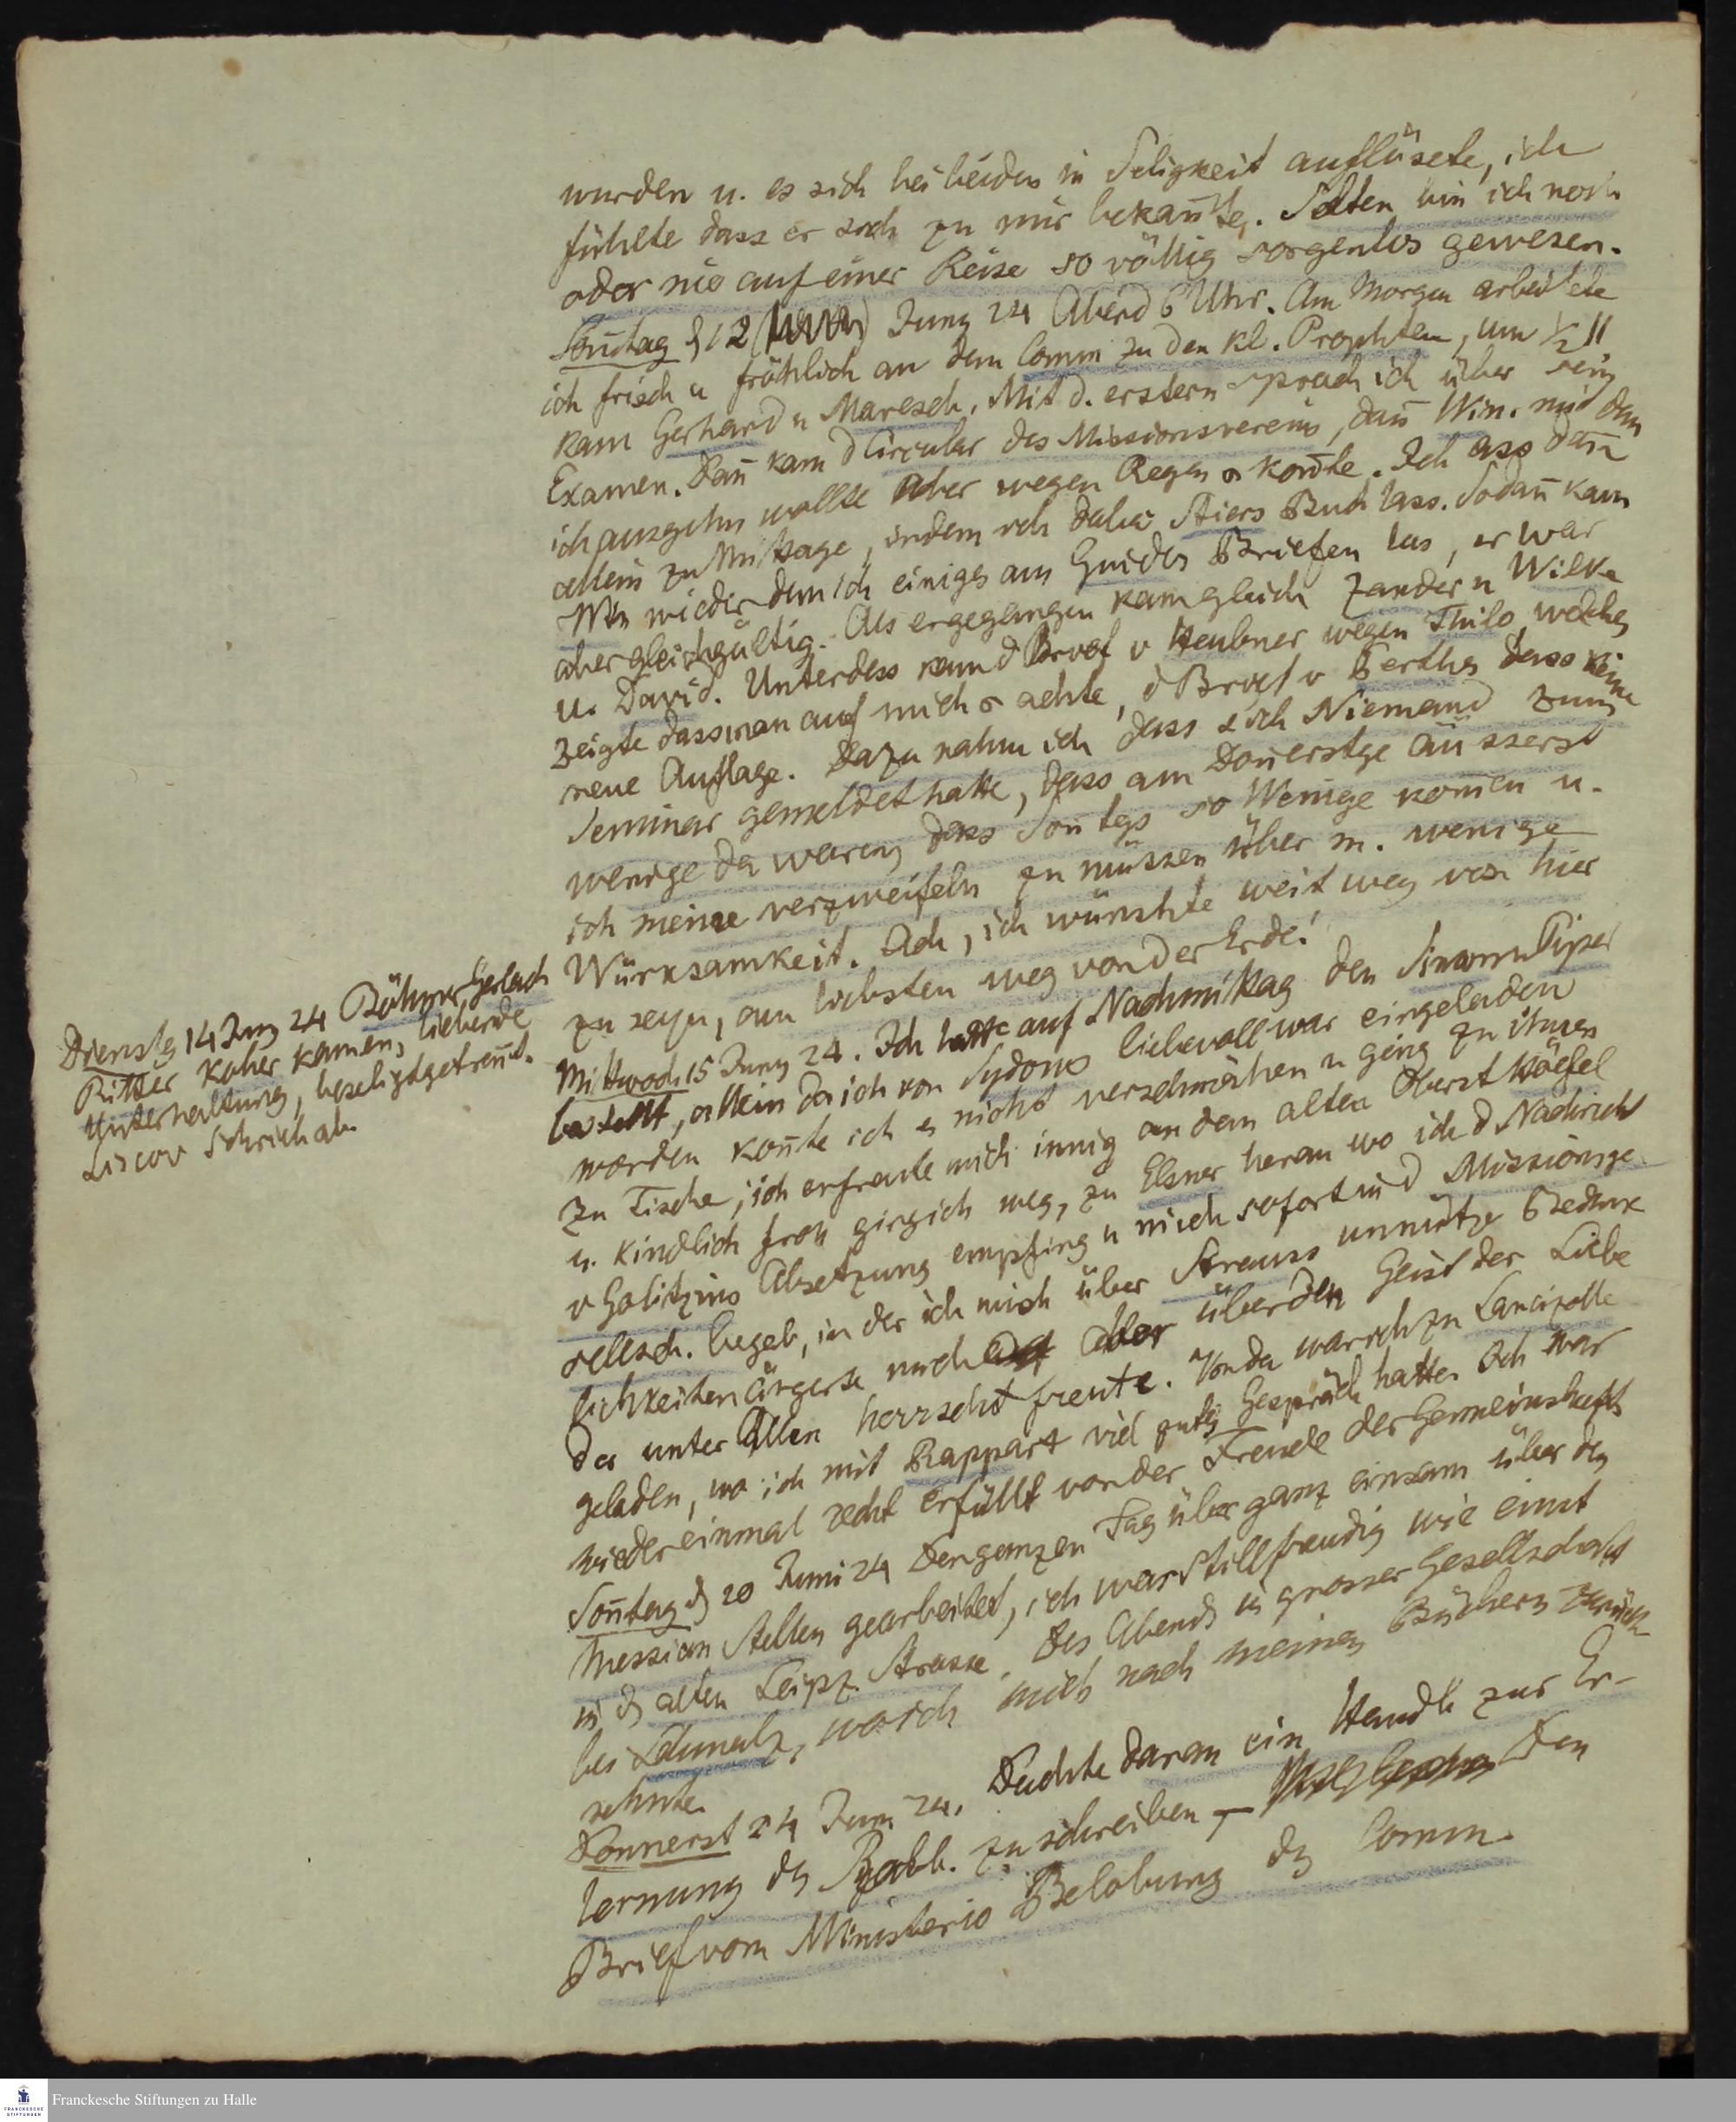 wurden u. es sich bei beiden in Seligkeit auflösete, ich
fühlte dass er sich zu mir bekañte. Selten bin ich noch
oder nie auf einer Reise so völlig sorgenlos gewesen.
Soñtag d 12 Juny 24 Abend 6 Uhr. Am Morgen arbeitete
ich frisch u fröhlich an dem Comm zu den kl. Propheten, um ½ 11
kam Gerhard u Maresch. Mit d. erstern sprach ich über sein
Examen. Dañ kam d Circular des Missionsvereins, dañ Win. mit dem
ich ausgehn wollte aber wegen Regen koñte. Ich ass dañ
allein zu Mittage, indem ich dabei Stiers Buch lass. Sodañ kam
Win wieder dem ich einiges aus Guides Briefen las, er war
aber gleichgültig. Als er gegangen kam gleich Zander u Wilke
u. David. Unterdess kam d Brief v Heubner wegen Thilo welcher
zeigte dass man auf mich achte, d Brief v Berthes dass keine
neue Auflage. Dazu nahm ich dass sich Niemand zum
Seminar gemeldet hatte, dass am Doñerstge äusserst
wenige da waren, dass Soñtgs so Wenige komen u.
ich meine verzweifeln zu müssen über m. wenige
Würksamkeit. Ach, ich wünschte weit weg von hier
zu seyn, am liebsten weg von der Erde!
Dienstg 14 Juny 24 Böhmer Gerlach
Ritter kamen, liebende
Unterhaltung, beseligdgetreñt.
Liscov schrieb ab
Mittwoch 15 Juny 24. Ich hatte auf Nachmittag den
bestellt, allein da ich von Sydows liebevoll war eingeladen
worden koñte ich es nicht verschmähen u ging zu ihnen
zu Tische; ich erfreute mich innig an dem alten Oberst
u. kindlich froh ging ich weg, zu Elsner heran wo ich d Nachricht
v Galitzins Absetzung empfing u mich sofort in d Missionsge
sellsch. begab, in der ich mich über Strauss unnütze Bedenk
lichkeiten ärgerte mich aber über den Geist der Liebe
der unter Allen herrscht freute. Von da war ich zu Lancizolle
geladen, wo ich mit Rappart viel gutes Gespräch hatte. Ich war
wieder einmal recht erfüllt von der Freude der Gemeinschaft
Soñtag d 20 Juni 24 Den ganzen Tag über ganz einsam über den
Messian Stellen gearbeitet, ich war still freudig wie einst
in d alten Leipz. Strasse. Des Abends in grosser Gesellschaft
bei Schmalz, wo ich mich nach meinen Büchern zurück
sehnte.
Donnerst 24 Jun 24. Dachte daran ein Handb zur Er-
lernung ds Rabb. zu schreiben – Den
Brief vom Ministerio Belobung ds Comm.
Franckesche Stiftungen zu Halle
FRANCKESCHE
STIFTUNGEN